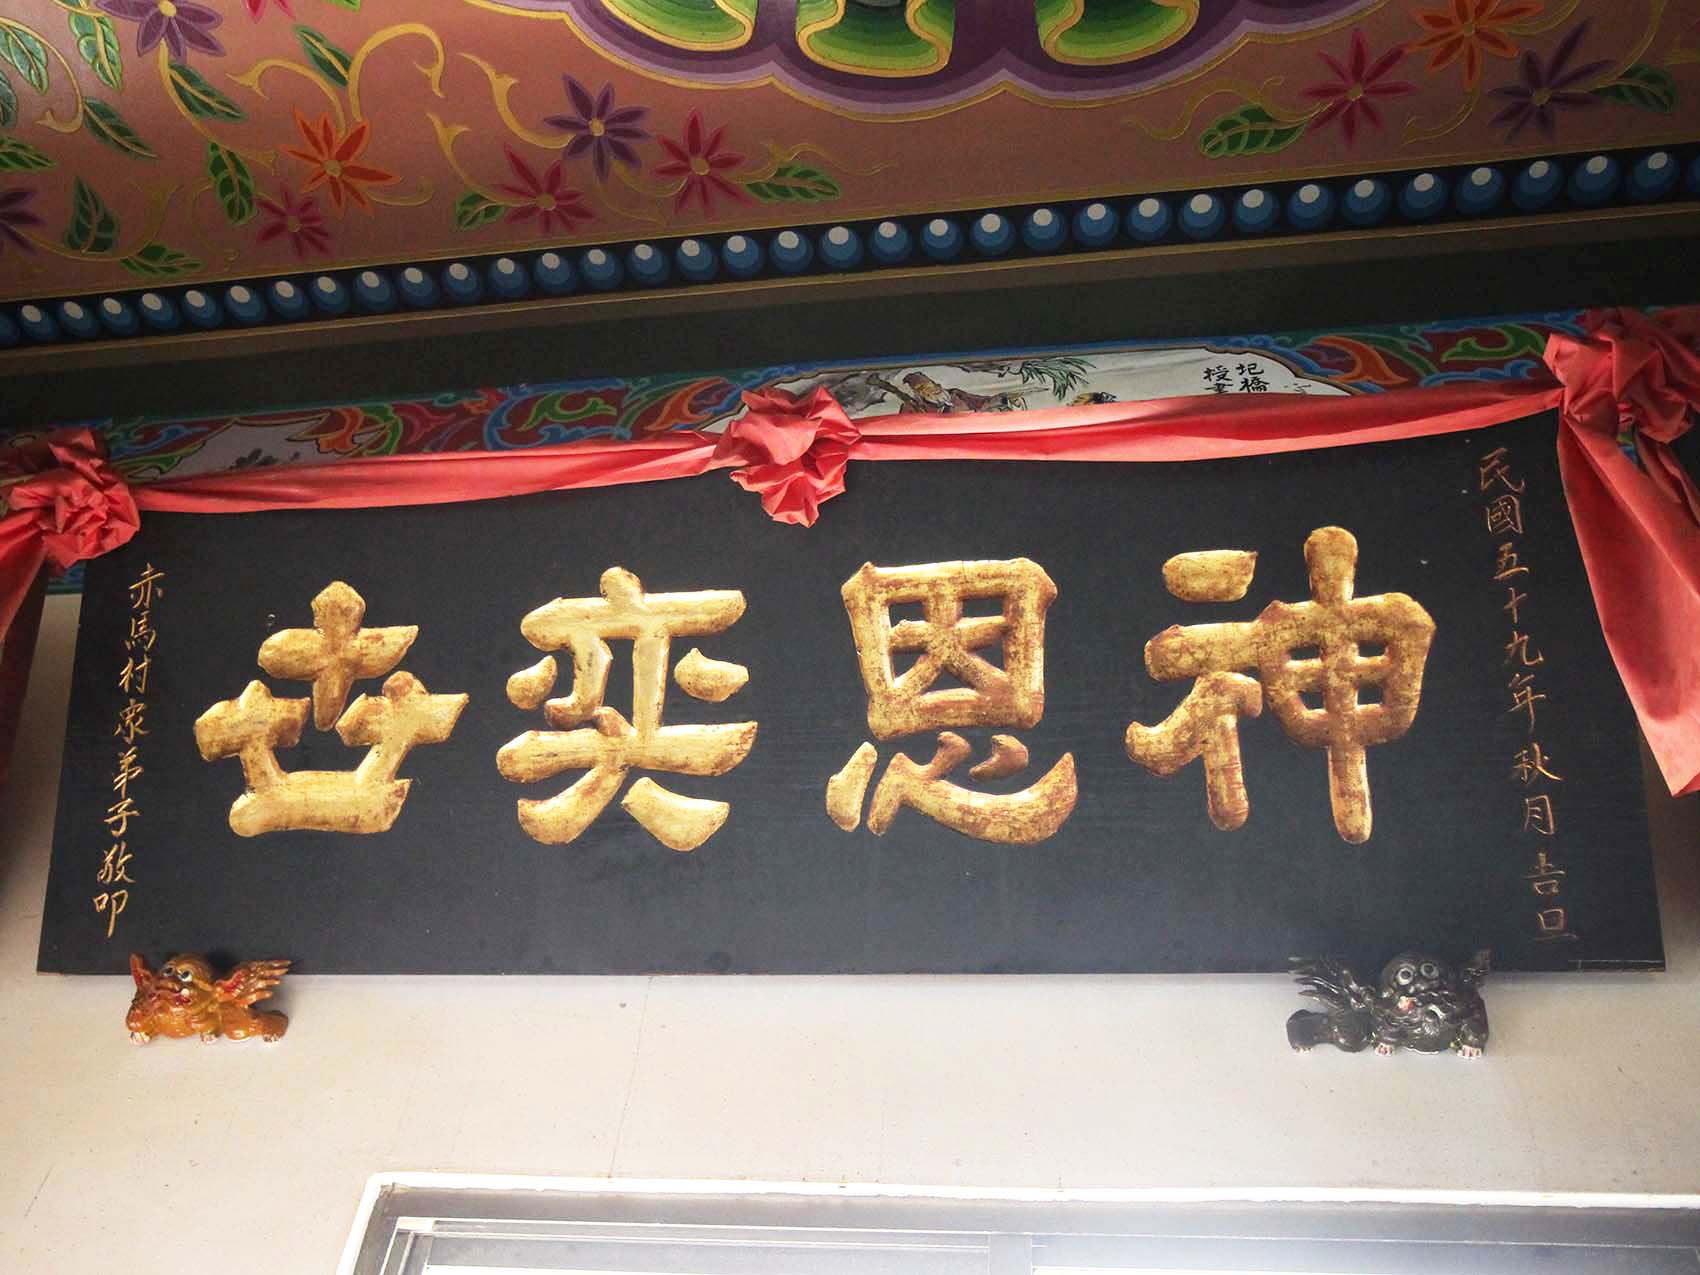 圯橋
授書
民國五十九年秋月吉旦
神恩奕世
赤馬村眾弟子敬叩